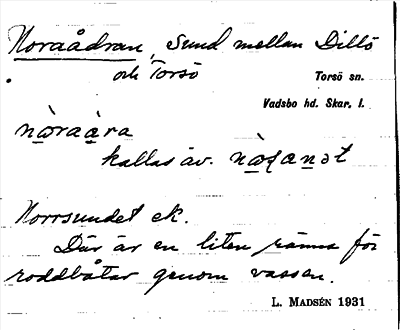 Noraådran, Sund mellan Dillö
och Torsö Torsö sn.
Vadsbo hd. Skar. l.
nòraǡra
kallas äv.
Norrsundet ek.
Där är en liten ränna för
roddbåtar genom vassen.
L. MADSÉN 1931